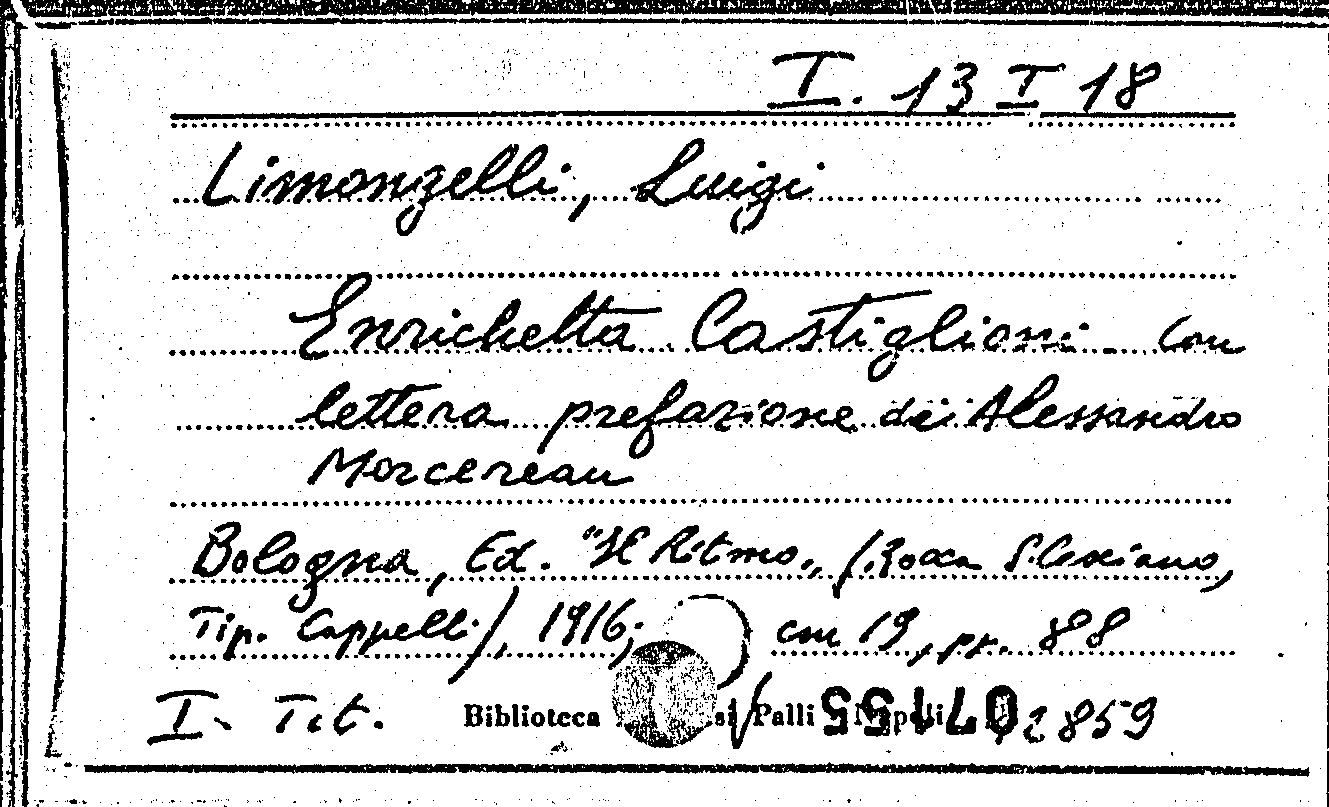 I. 13 I 18
Limonzelli, Luigi
Enrichetta Castiglioni. Con
lettera prefazione di Alessandro
Morcereau
Bologna, Ed. "Il Ritmo„ (Rocca S. Casciano,
Tip. Cappelli), 1916; cm 19, pp. 88
I. Tit. Biblioteca Palli 071155 2859